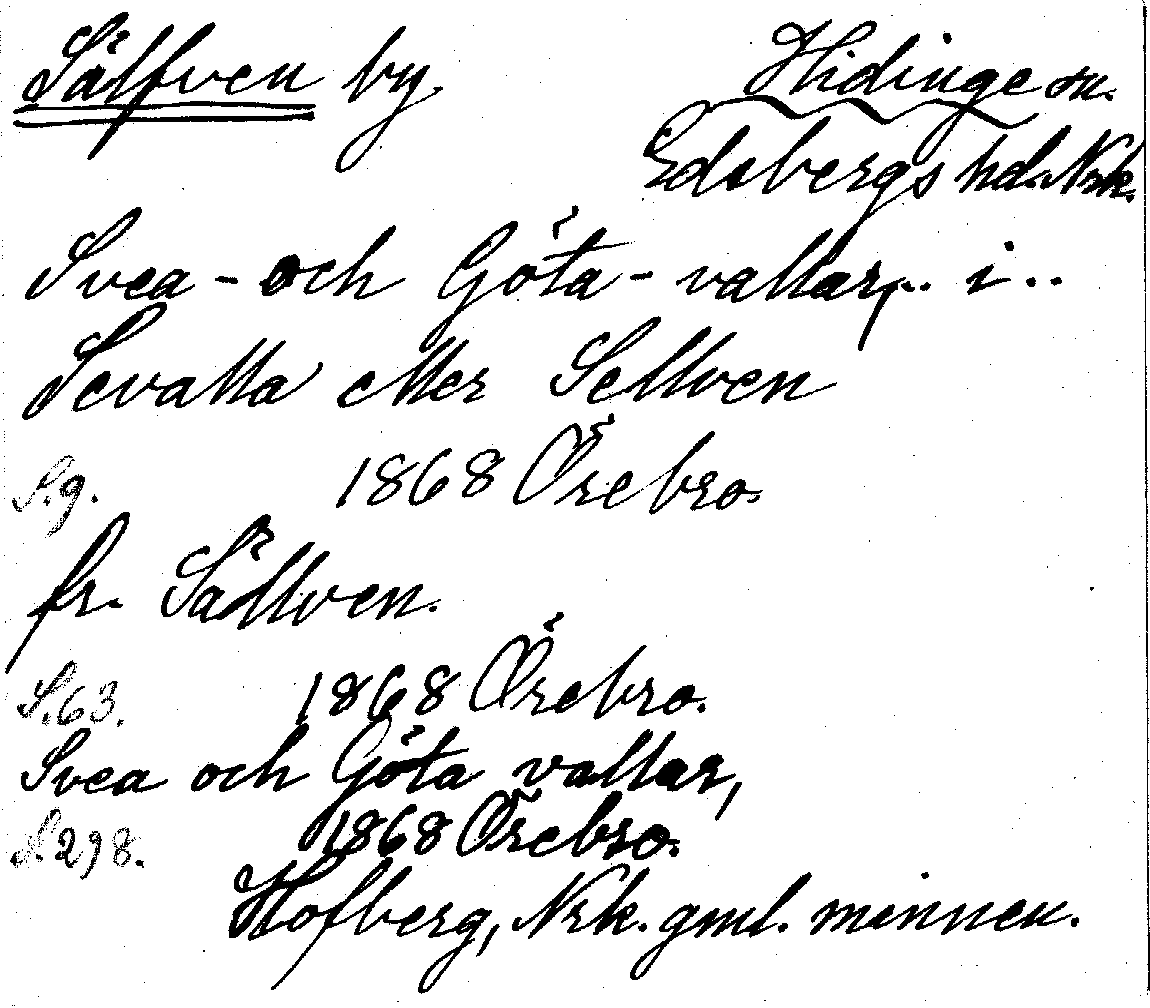 Sälfven by Hidinge sn.
Edsbergs hd. Nrk.
Svea - och Göta - vallar, .. i ..
Sevalla eller Sellven
S. 9. 1868 Örebro.
fr. Sällven.
S. 63. 1868 Örebro.
Svea och Göta vallar,
S. 298. 1868 Örebro.
Hofberg, Nrk. gml. minnen.